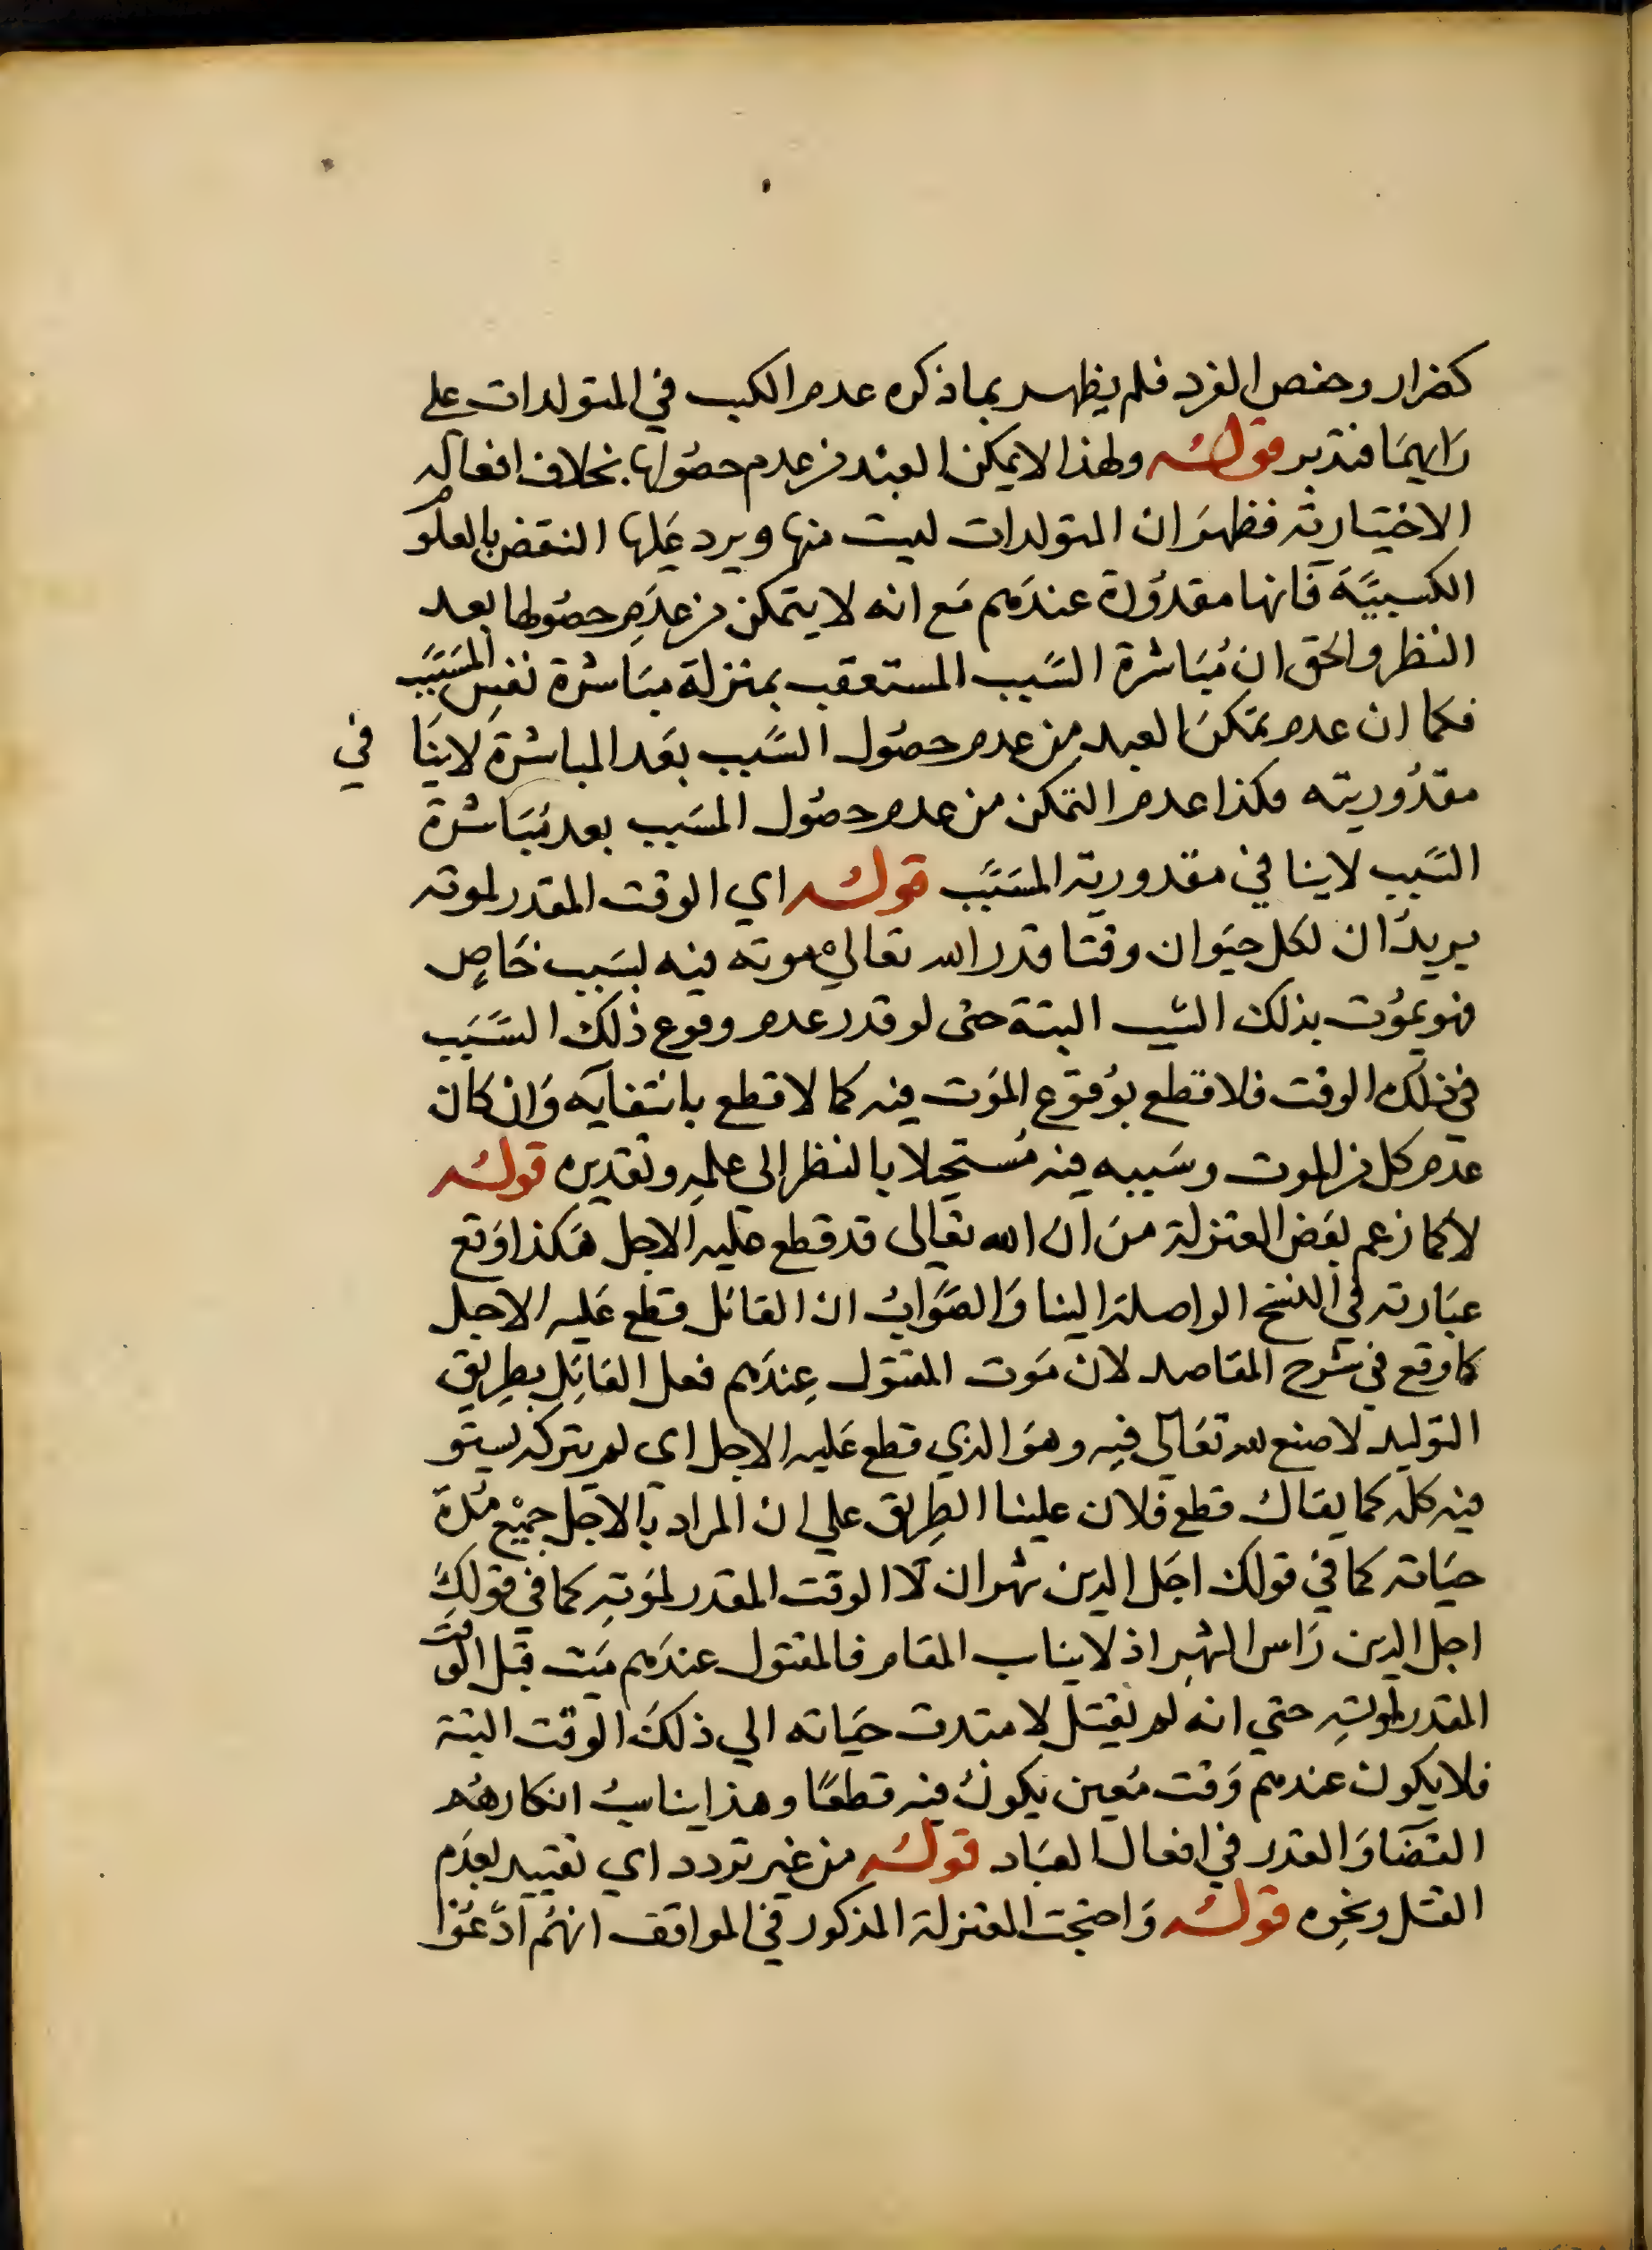 كضرار وحفص الفرد فلم يظهر بما ذكره عدم الكسب في المتولدات علي
رَايهمَا فتدبر قوله ولهذا لايمكن العبد من عدم حصُولها بخلاف افعاله
الاختيارية فظهرَ ان المتولدات ليست منها ويرد عَليها النقض بالعلوم
الكسبيَّة فَانها مقدُورة عندهم مَع انه لا يتمكن من عدَمِ حصُولها بعد
النظر والحق ان مُبَاشرة السَّبب المستعقب بمنزلة مبَاشرة نفسِ المسَبَّب
فكما ان عدم تمكنَ العبد من عدم حصُول السَّبب بعَد المباشرة لاينَافي
مقدُوريته فكذا عدم التمكن من عدم حصُول المسَبب بعد مُبَاشرة
السَّبب لاينافي مقدورية المسَبَّب قوله اي الوقت المقدر لموته
يريدُ ان لكل حيَوان وقتا قدر الله تعالي موته فيه بسَبب خَاصٍ
فهو يموُت بذلك السَّبب البتة حتى لو قدر عدم وقوع ذلك السَّبَب
في ذلك الوقت فلاقطع بوُقوع الموَت فيه كما لا قطع بانتفآيه وَان كان
عدم كل من الموت وسَببه فيه مُستحيلا بالنظر الي علمهِ وتقديره قوله
لا كما زعم بعَض المعتزلة منَ ان الله تعالى قد قطع عليه الاجل هَكذا وَقع
عبَارته في النسخ الواصلة الينا وَالصَّوَابُ ان القاتل قطع عَليه الاجل
كما وقع في شرح المقاصد لان مَوت المقتول عِندَهم فعل القاتِل بطِريق
التوليد لا صنع لله تعَالي فيِه وهوَ الذي قطع عَليه الاجل اى لم يتركه ليستو
فيه كله كما يقال قطع فلان علينا الطِريق علي ان المراد بالاجل جميْع مُدة
حيَاته كما في قولك اجَل الدين شهران لا الوقت المقدر لموَتهِ كما في قولكَ
اجل الدين رَاس الشهر اذ لايناسب المقام فالمقتول عندَهم ميَت قبل الوقت
المقدر لموتهِ حتي انه لو لم يقتل لامتدت حَياته الي ذلكَ الوقت البتة
فلا يكون عندهم وَقت مُعين يكونُ فيه قطعًا وهذا يناسبُ انكارهُم
القضَآ وَالقدر في افعال العبَاد قوله من غير تردد اي تقييد بعدَم
القتل ونحوِه قوله وَاحتجت المعتزلة المذكور في المواقف انهُم ادّعوُا